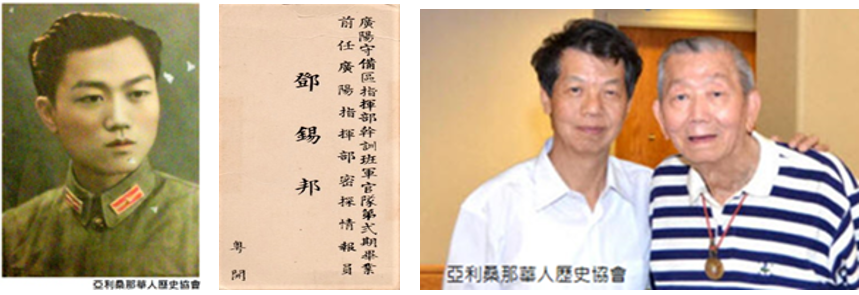 亞利桑那華人歷史協會
廣陽守備區指揮部幹訓班軍官隊第弍期畢業
前任廣陽指揮部密探情報員
鄧錫邦
粵開
亞利桑那華人歷史協會